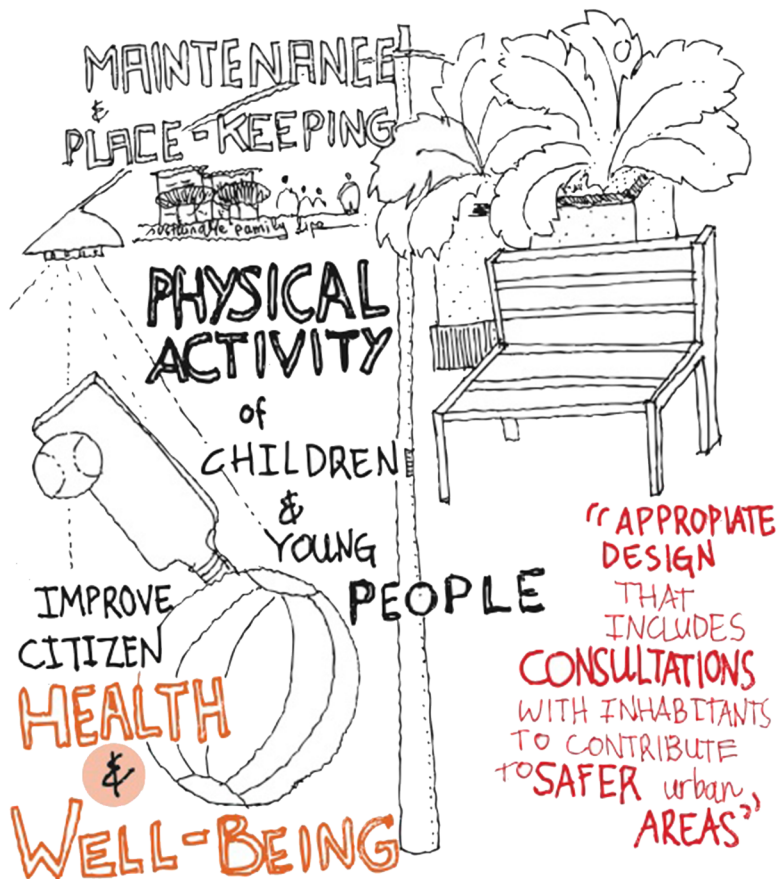 MAINTENANCE
&
PLACE-KEEPING
sustainable family life
PHYSICAL
ACTIVITY
of
CHILDREN
&
YOUNG
PEOPLE
IMPROVE
CITIZEN
HEALTH
&
WELL-BEING
"APPROPIATE
DESIGN
THAT
INCLUDES
CONSULTATIONS
WITH INHABITANTS
TO CONTRIBUTE
TO SAFER urban
AREAS"